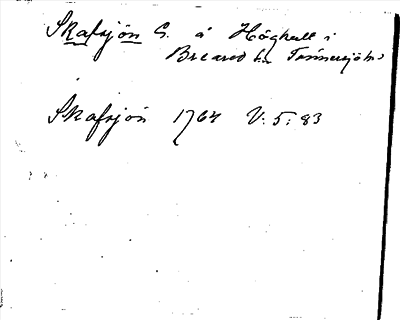 Skafsjön S. å Höghult i
Breared sn Tönnersjö hd
Skafsjön 1764 V: 5: 83